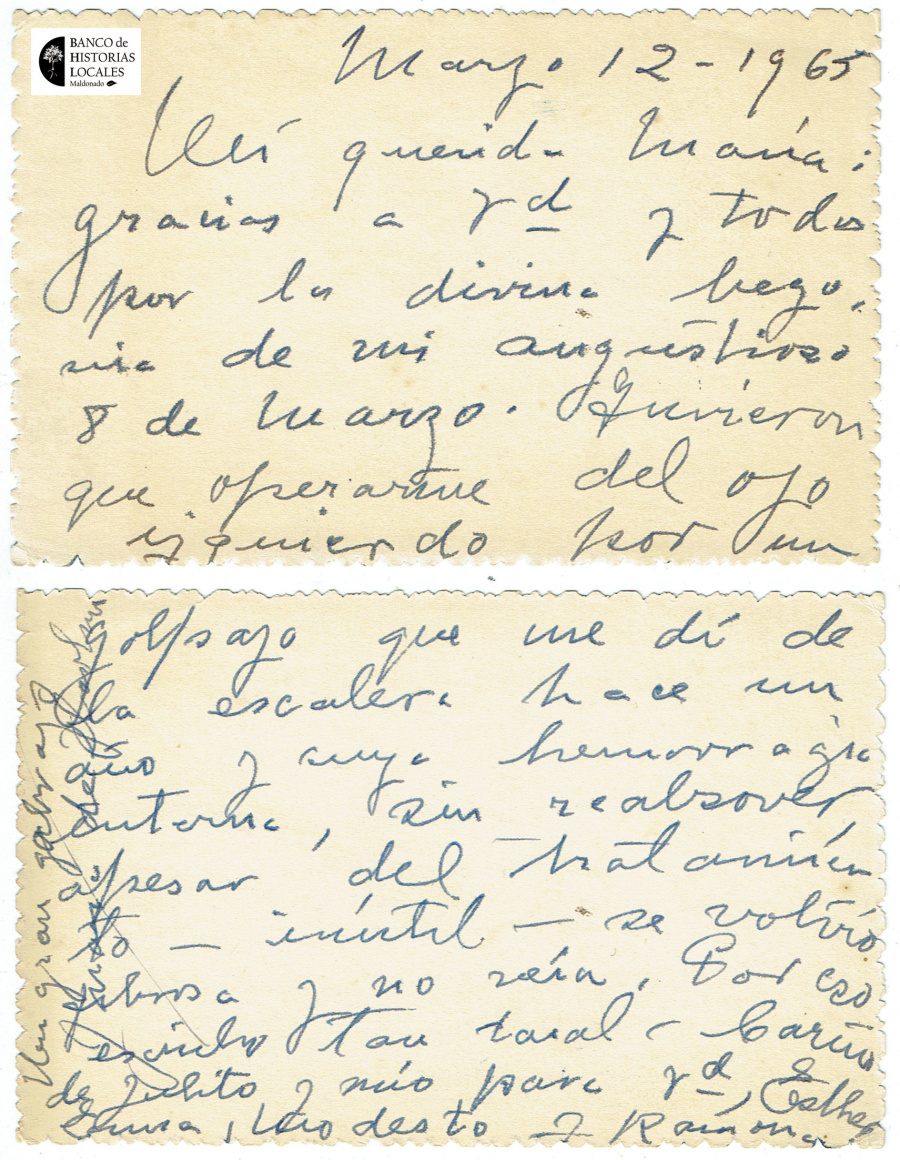 BANCO de
HISTORIAS
LOCALES
Maldonado
Marzo 12-1965
Mi querida María:
gracias a Vd y todos
por la divina bego-
nia de mi angustioso
8 de Marzo. Tuvieron
que operarme del ojo
izquierdo por un
golpazo que me dí de
la escalera hace un
año y cuya hemorragia
interna, sin reabsover,
apesar del tratamien
to — inútil — se volvió
fibrosa y no veía. Por eso
escribo tan mal - Cariños
de Julito y mío para Vd, Esther
Ema, Modesto y Ramona
Un gran abrazo
de